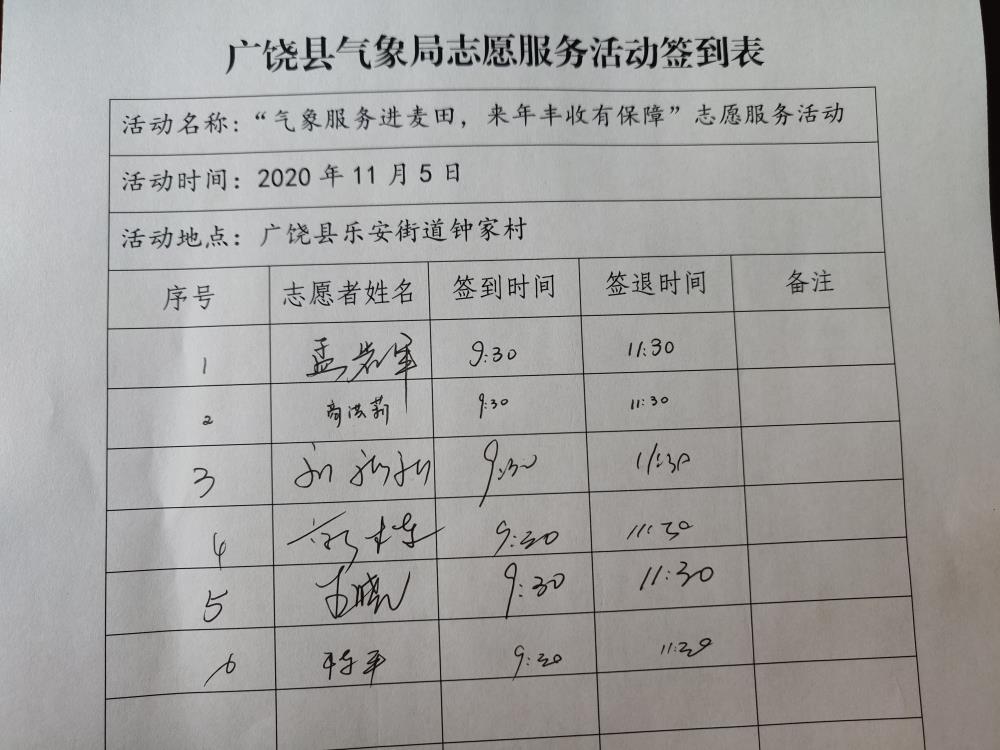 广饶县气象局志愿服务活动签到表
活动名称：“气象服务进麦田，来年丰收有保障”志愿服务活动
活动时间：2020 年 11 月 5 日
活动地点：广饶县乐安街道钟家村
序号 志愿者姓名 签到时间 签退时间 备注
1 孟岩军 9:30 11:30
2 9:30 11:30
3 9:30 11:30
4 9:30 11:30
5 9:30 11:30
6 9:30 11:30